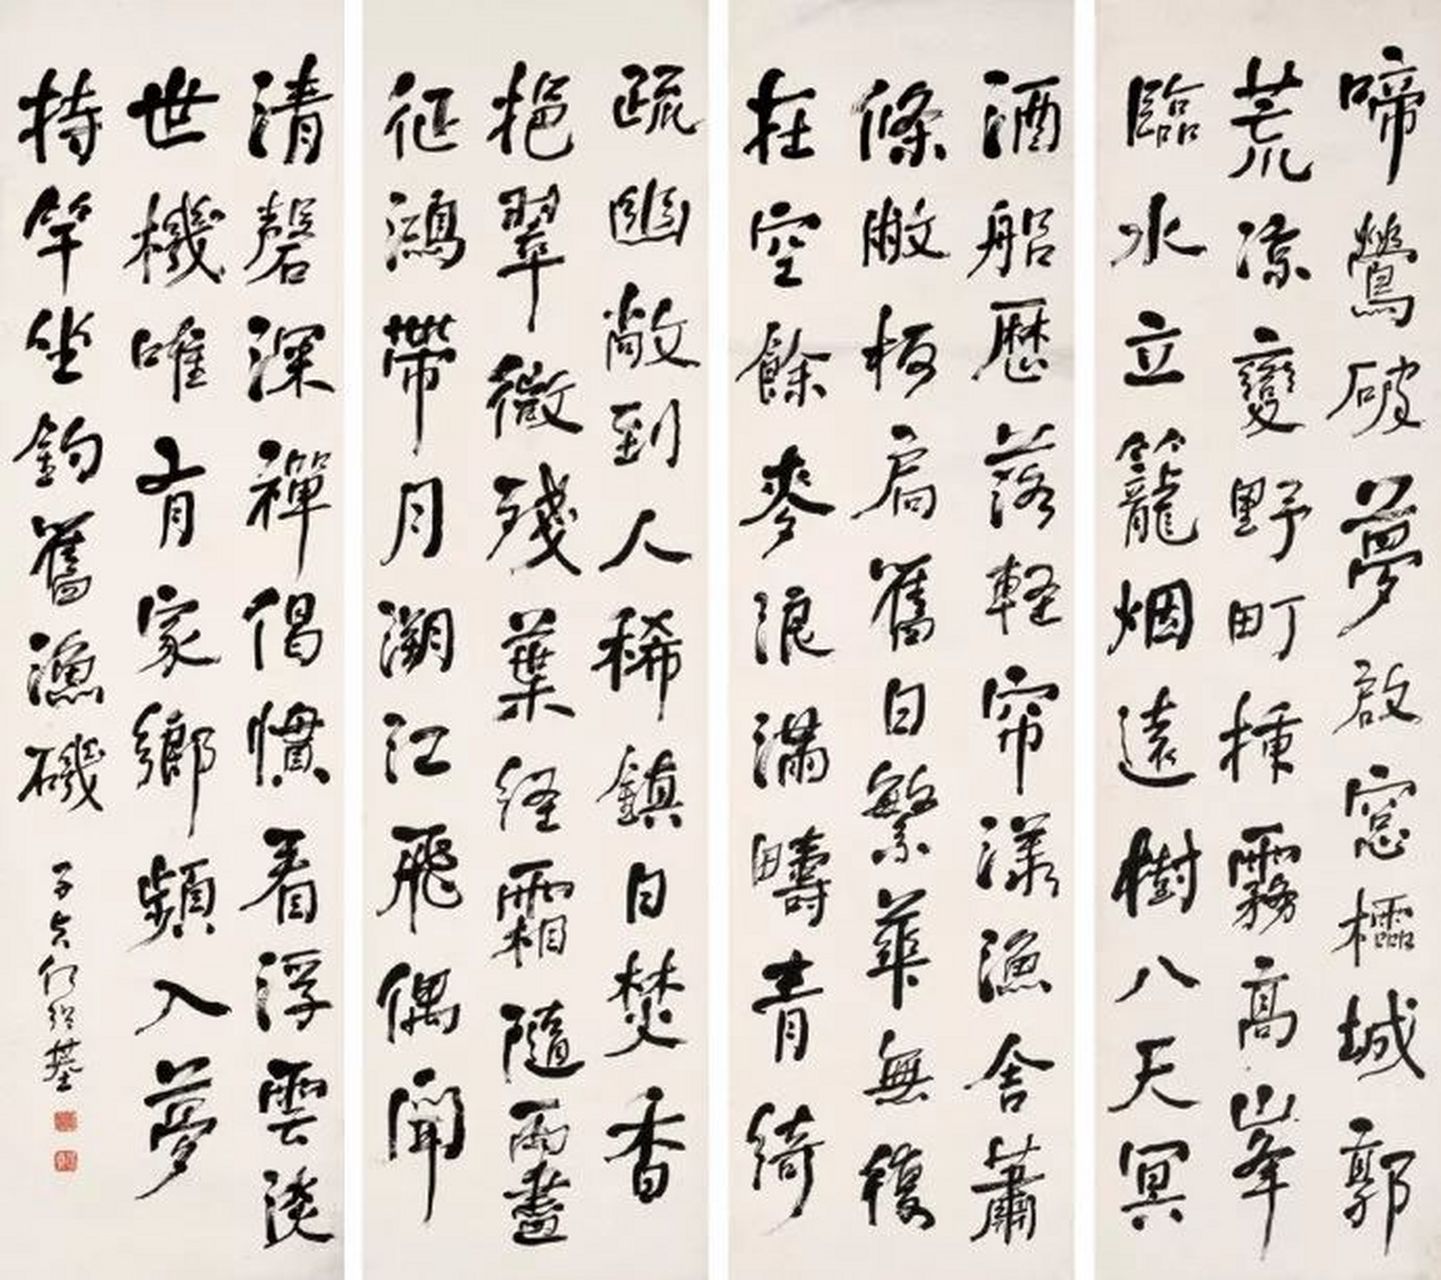 啼鶯破夢啟窓櫺城郭
荒涼變野町種霧高峯
臨水立籠烟遠樹入天冥
酒船歷落輕帘漾漁舍蕭
條敝板扃舊日繁華無復
在空餘麥浪滿疇青綺
疏幽敞到人稀鎮日焚香
挹翠微殘葉經霜隨雨盡
征鴻帶月溯江飛偶聞
清磬深禪偈慣看浮雲淡
世機唯有家鄉頻入夢
持竿坐釣舊漁磯
子貞何紹基